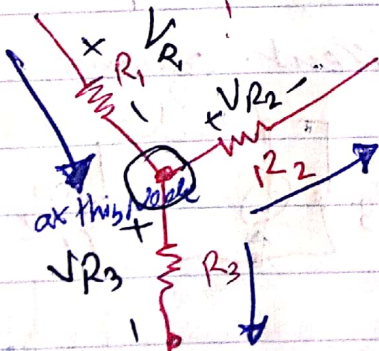 + VR1
R1
-
+ VR2 -
R2
at this Node
+
VR3
R3
-